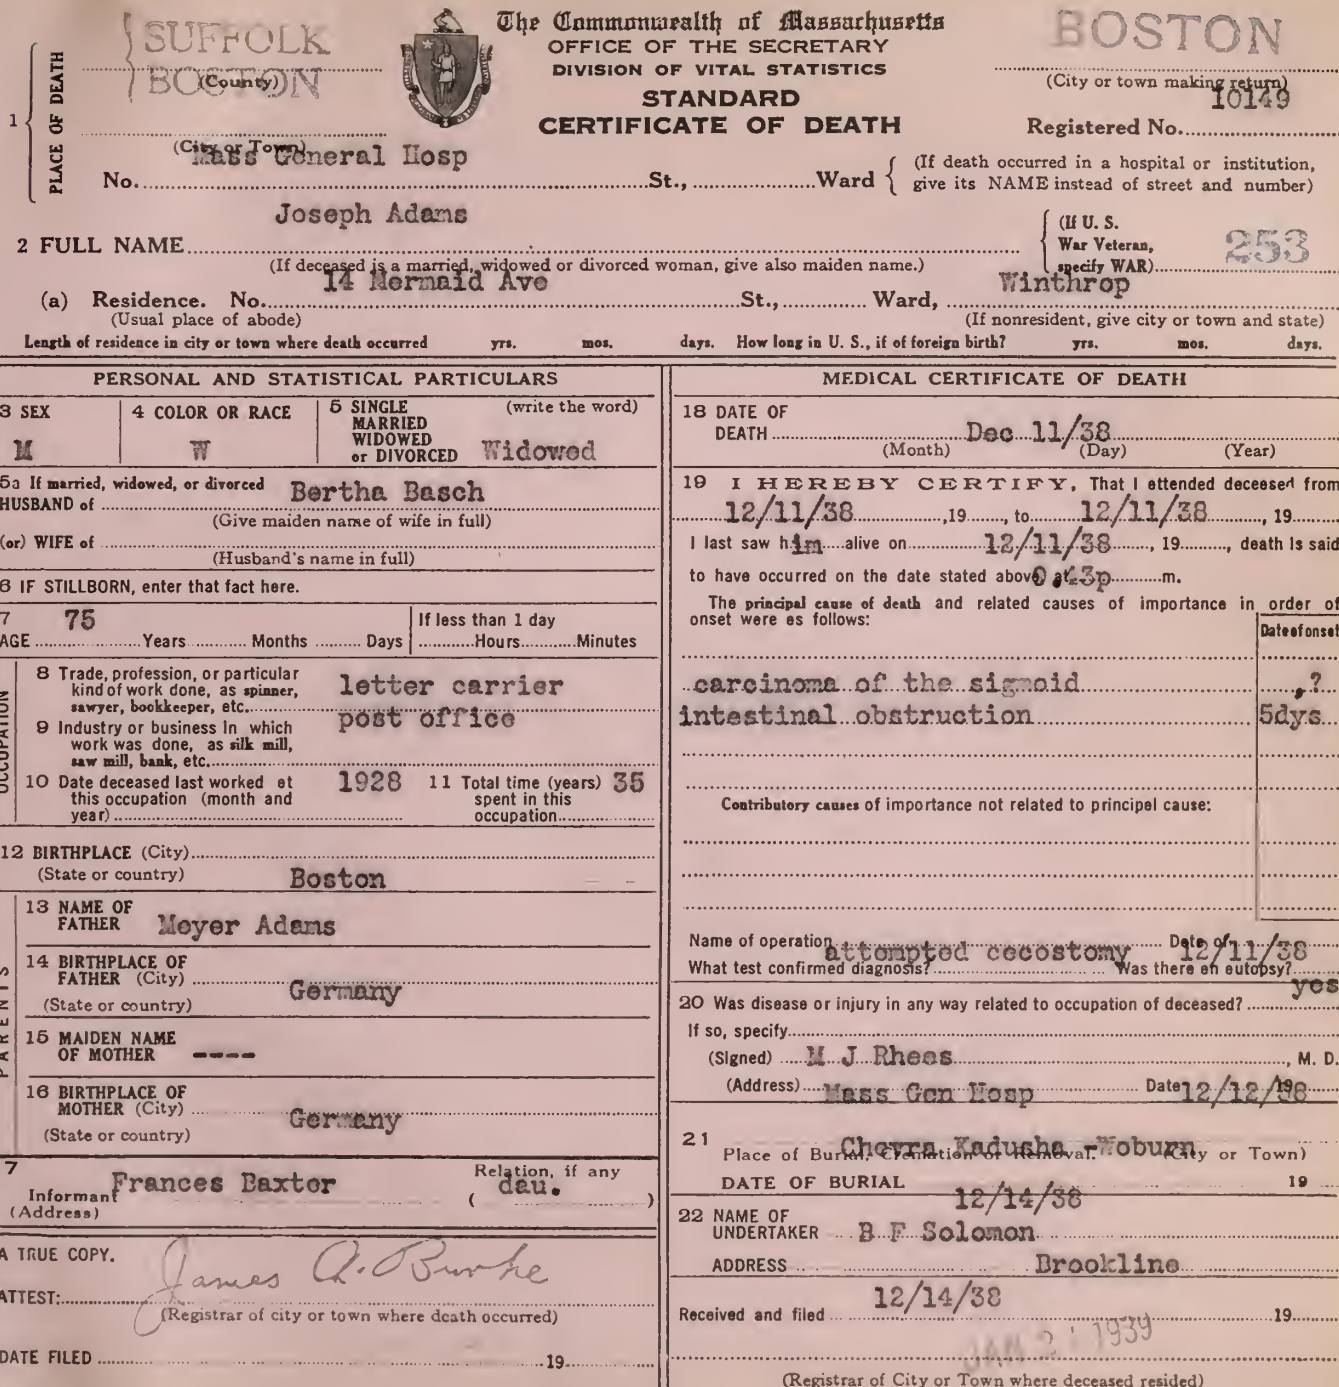 SUFFOLK
BOSTON
(County)
The Commonwealth of Massachusetts
OFFICE OF THE SECRETARY
DIVISION OF VITAL STATISTICS
STANDARD
CERTIFICATE OF DEATH
BOSTON
(City or town making return)
10149
Registered No.
1 PLACE OF DEATH
(City or Town)
Mass General Hosp
No. St., Ward
(If death occurred in a hospital or institution,
give its NAME instead of street and number)
Joseph Adams
2 FULL NAME
(If deceased is a married, widowed or divorced woman, give also maiden name.)
(If U. S.
War Veteran,
specify WAR)
253
14 Mermaid Ave Winthrop
(a) Residence. No. St., Ward,
(Usual place of abode) (If nonresident, give city or town and state)
Length of residence in city or town where death occurred yrs. mos. days. How long in U. S., if of foreign birth? yrs. mos. days.
PERSONAL AND STATISTICAL PARTICULARS
3 SEX
M
4 COLOR OR RACE
W
5 SINGLE
MARRIED
WIDOWED
or DIVORCED
(write the word)
Widowed
5a If married, widowed, or divorced
HUSBAND of
Bertha Basch
(Give maiden name of wife in full)
(or) WIFE of
(Husband's name in full)
6 IF STILLBORN, enter that fact here.
7 75
AGE Years Months Days
If less than 1 day
Hours Minutes
OCCUPATION
8 Trade, profession, or particular
kind of work done, as spinner,
sawyer, bookkeeper, etc.
letter carrier
9 Industry or business in which
work was done, as silk mill,
saw mill, bank, etc.
post office
10 Date deceased last worked at
this occupation (month and
year)
1928
11 Total time (years)
spent in this
occupation
35
12 BIRTHPLACE (City)
(State or country) Boston
PARENTS
13 NAME OF
FATHER Meyer Adams
14 BIRTHPLACE OF
FATHER (City)
(State or country) Germany
15 MAIDEN NAME
OF MOTHER ----
16 BIRTHPLACE OF
MOTHER (City)
(State or country) Germany
7
Informant Frances Baxter
(Address)
Relation, if any
( dau. )
A TRUE COPY.
James A. Burke
ATTEST:
(Registrar of city or town where death occurred)
DATE FILED 19
MEDICAL CERTIFICATE OF DEATH
18 DATE OF
DEATH Dec 11/38
(Month) (Day) (Year)
19 I HEREBY CERTIFY, That I attended deceased from
12/11/38, 19, to 12/11/38, 19
I last saw him alive on 12/11/38, 19, death is said
to have occurred on the date stated above, at m.
The principal cause of death and related causes of importance in order of
onset were as follows:
Date of onset
carcinoma of the sigmoid ?
intestinal obstruction 5dys
Contributory causes of importance not related to principal cause:
Name of operation attempted cecostomy Date of 12/11/38
What test confirmed diagnosis? Was there an autopsy?
yes
20 Was disease or injury in any way related to occupation of deceased?
If so, specify
(Signed) M J Rhees, M. D.
(Address) Mass Gen Hosp Date 12/12/38 19
21
Place of Burial, Cremation or Removal. Chevra Kadusha - Woburn (City or Town)
DATE OF BURIAL 12/14/38 19
22 NAME OF
UNDERTAKER B F Solomon
ADDRESS Brookline
Received and filed 12/14/38 19
1939
(Registrar of City or Town where deceased resided)